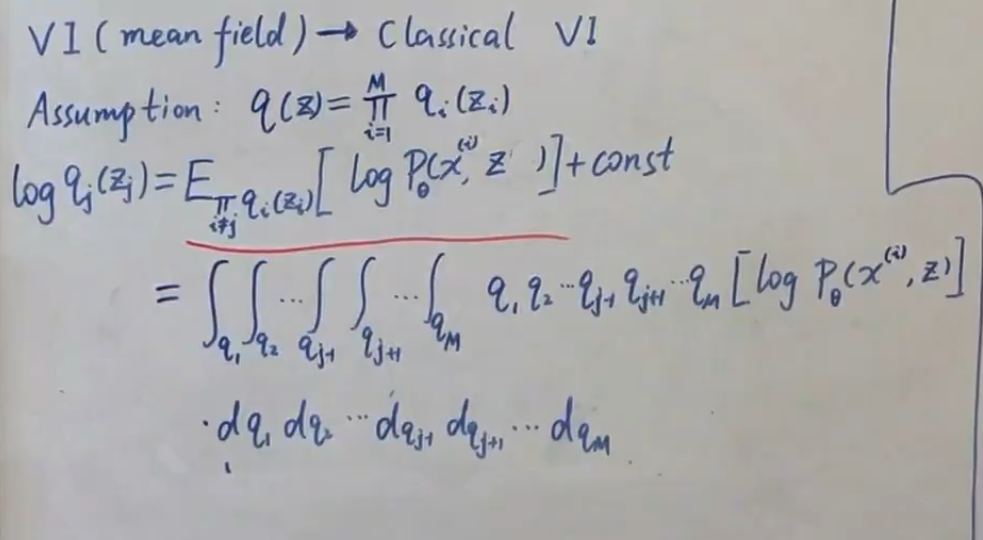 VI (mean field) → Classical VI
Assumption: q(z) = ∏_{i=1}^{M} q_i(z_i)
log q_j(z_j) = E_{∏_{i≠j} q_i(z_i)} [ log P_θ(x^{(i)}, z ) ] + const
= ∫_{q_1} ∫_{q_2} ... ∫_{q_{j-1}} ∫_{q_{j+1}} ... ∫_{q_M} q_1 q_2 ... q_{j-1} q_{j+1} ... q_M [log P_θ(x^{(i)}, z)]
· dq_1 dq_2 ... dq_{j-1} dq_{j+1} ... dq_M